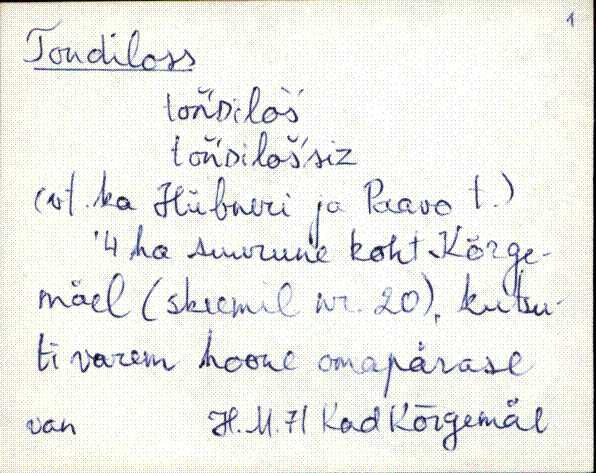 1
Tondiloss
toń̆Dilos̀́
toń̆Diloš́siz
(vt. ka Hübneri ja Paavo t.)
'4 ha suurune koht Kõrge-
mäel (skeemil nr. 20), kutsu-
ti varem hoone omapärase
van H.M.71 Kad Kõrgemäe